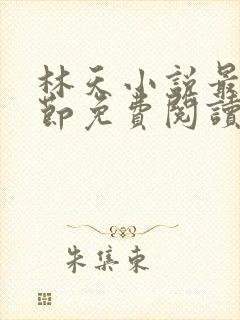 林天小說最
節免費閱讀
朱集東